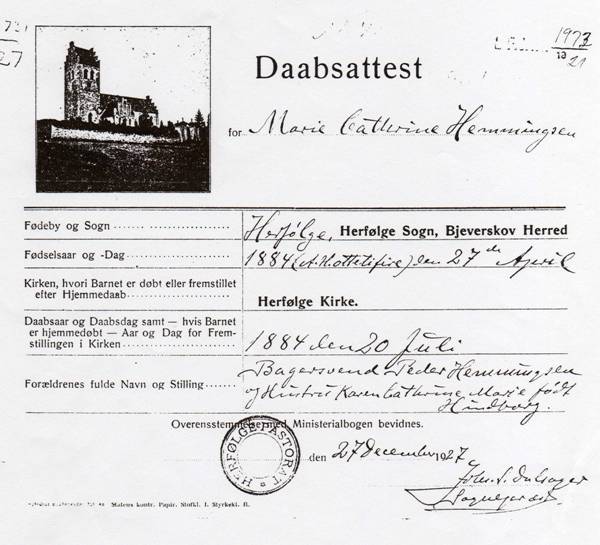 1973
27
Daabsattest
for Marie Cathrine Hemmingsen
Fødeby og Sogn
Herfølge, Herfølge Sogn, Bjeverskov Herred
Fødselsaar og -Dag
1884 den 27de April
Kirken, hvori Barnet er døbt eller fremstillet
efter Hjemmedaab
Herfølge Kirke.
Daabsaar og Daabsdag samt — hvis Barnet
er hjemmedøbt — Aar og Dag for Frem-
stillingen i Kirken
1884 den 20 Juli
Forældrenes fulde Navn og Stilling
Bagersvend Peder Hemmingsen
og Hustru Karen Cathrine Marie født
Hindborg.
Overensstemmelse med Ministerialbogen bevidnes.
HERFØLGE PASTORAT
den 27 December 1927
Sognepræst
Mateus kontr. Papir. Stofkl. I. Styrkekl. II.